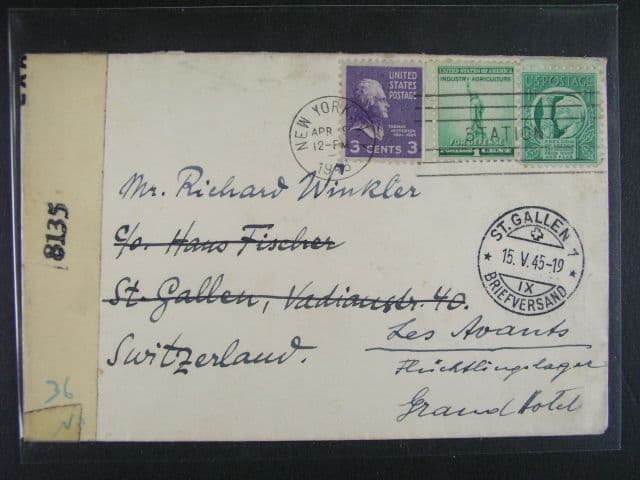 8135
36
NEW YORK
APR
12-PM
STATION
UNITED
STATES
POSTAGE
THOMAS
JEFFERSON
3 CENTS 3
UNITED STATES OF AMERICA
INDUSTRY AGRICULTURE
FOR DEFENSE
U.S. POSTAGE
Mr. Richard Winkler
c/o. Hans Fischer
St. Gallen, Vadianstr. 40.
Switzerland.
ST. GALLEN 1
15. V. 45-19
IX
BRIEFVERSAND
Les Avants
Flüchtlingslager
Grand Hotel